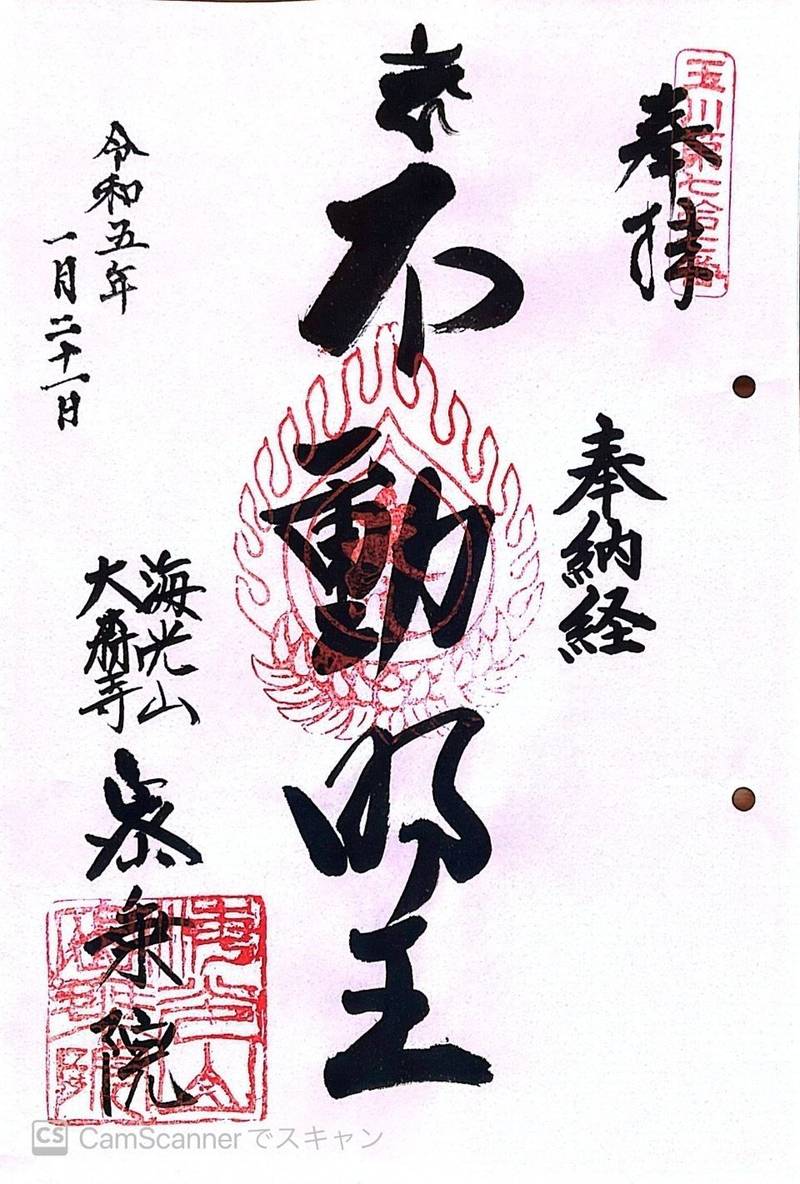 玉川第七拾七番
奉拝
奉納経
不動明王
令和五年
一月二十一日
海光山
密乗院
CS CamScannerでスキャン